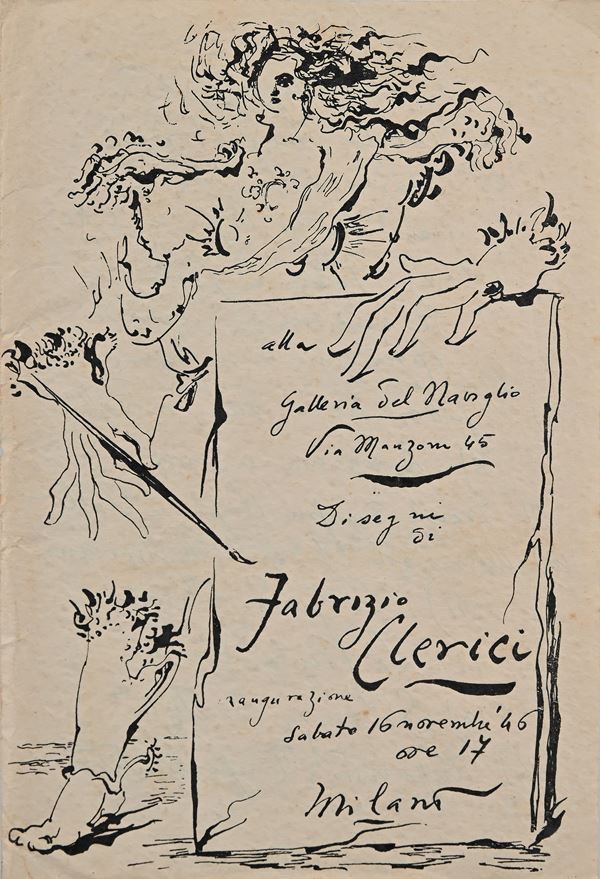 alla
Galleria del Naviglio
Via Manzoni 45
Disegni
di
Fabrizio
Clerici
inaugurazione
Sabato 16 novemb. '46
ore 17
Milano